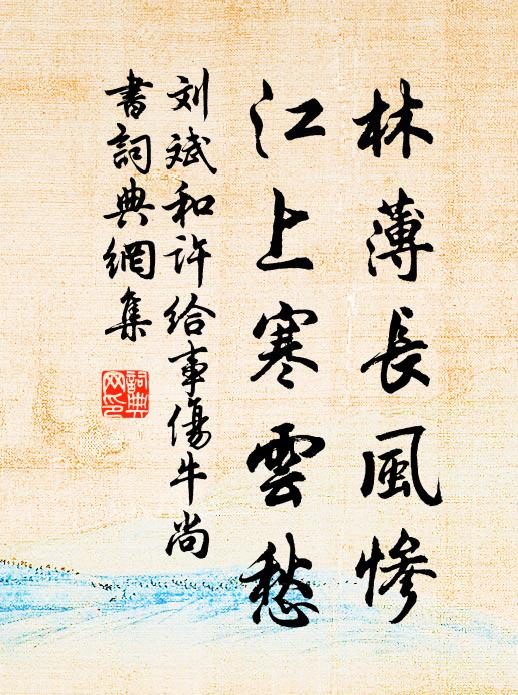 林薄長風慘
江上寒雲愁
刘斌和许给事傷牛尚
書詞典網集
詞典
网印